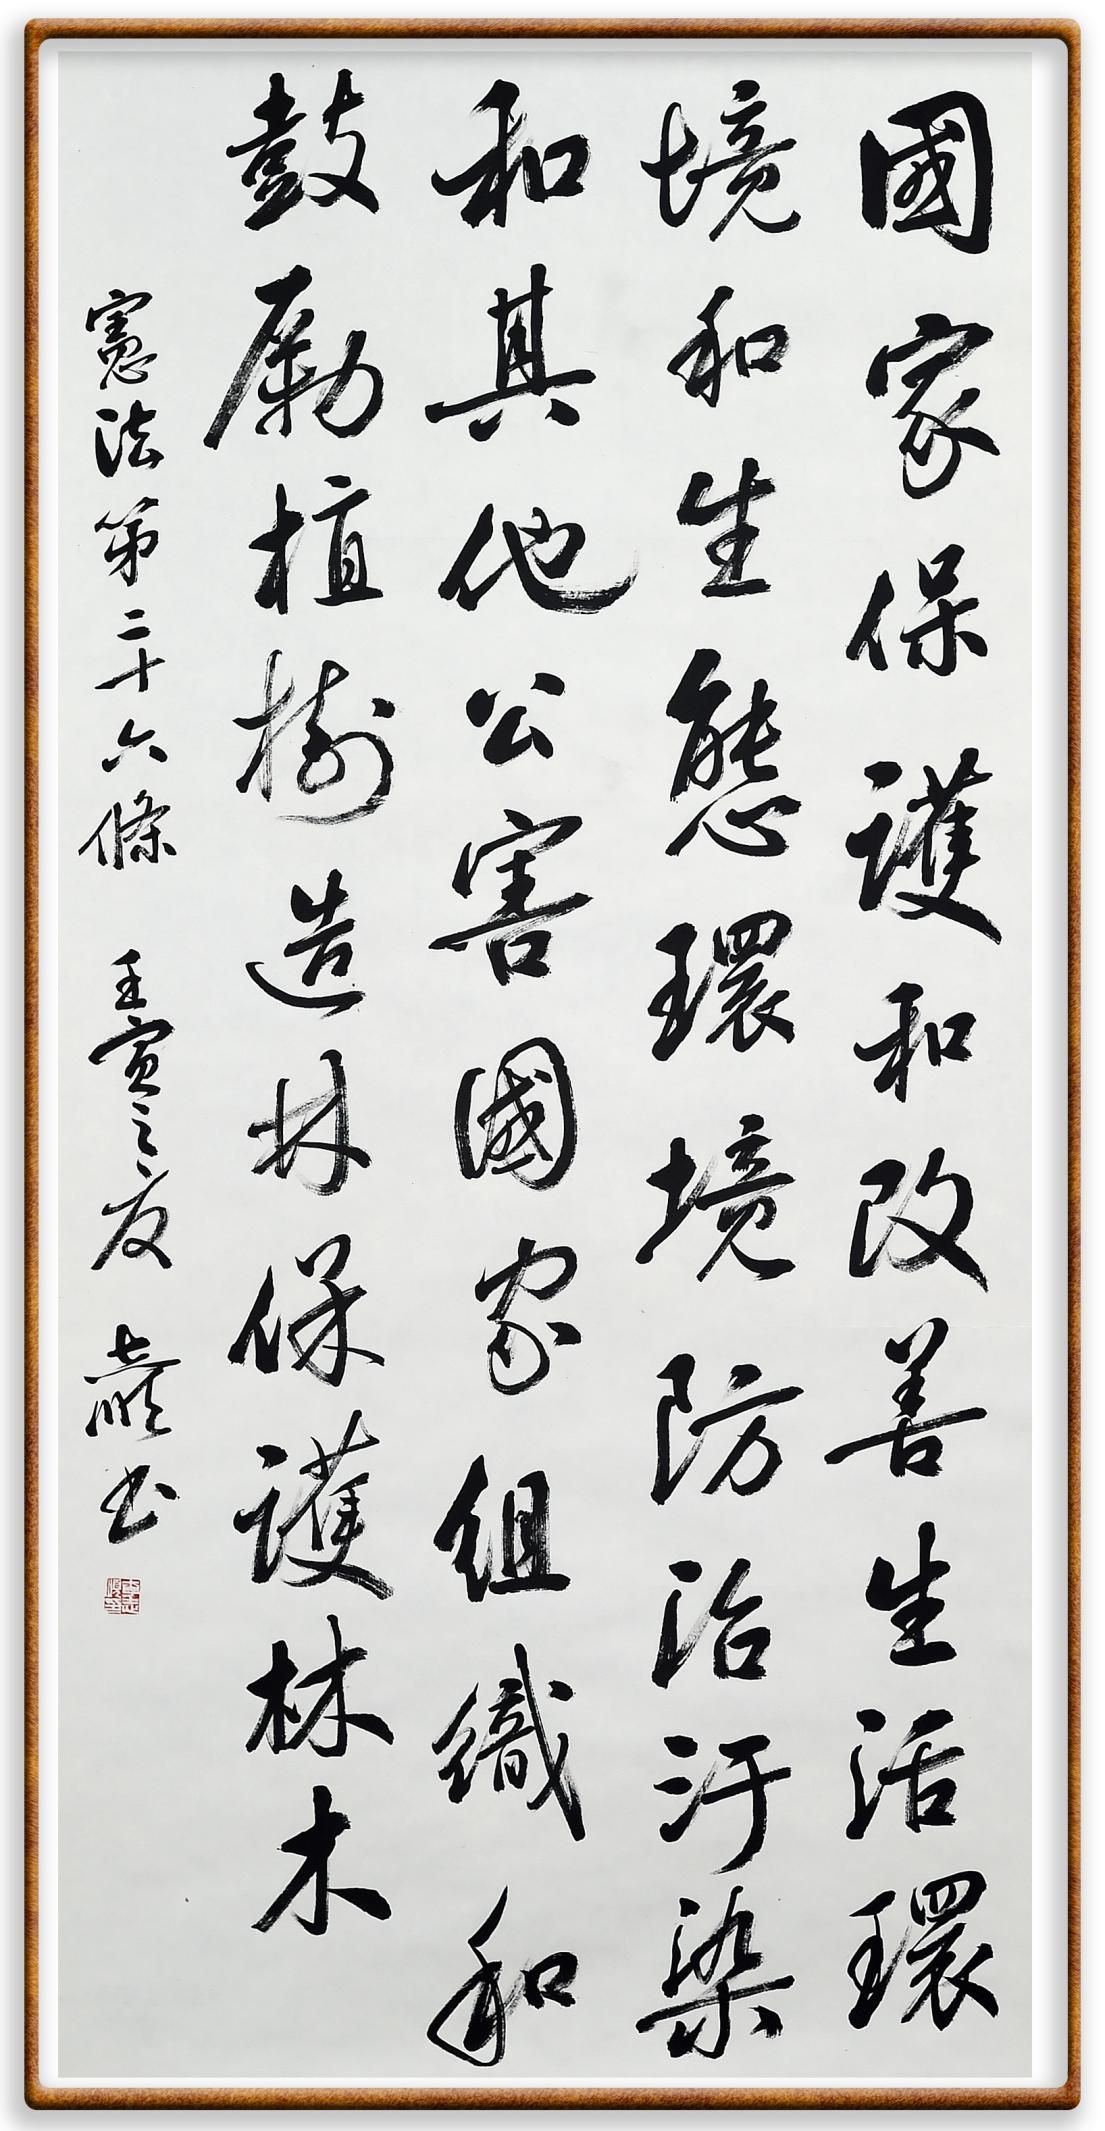 國家保護和改善生活環
境和生態環境防治汙染
和其他公害國家組織和
鼓勵植樹造林保護林木
憲法第二十六條 壬寅之夏 志順书